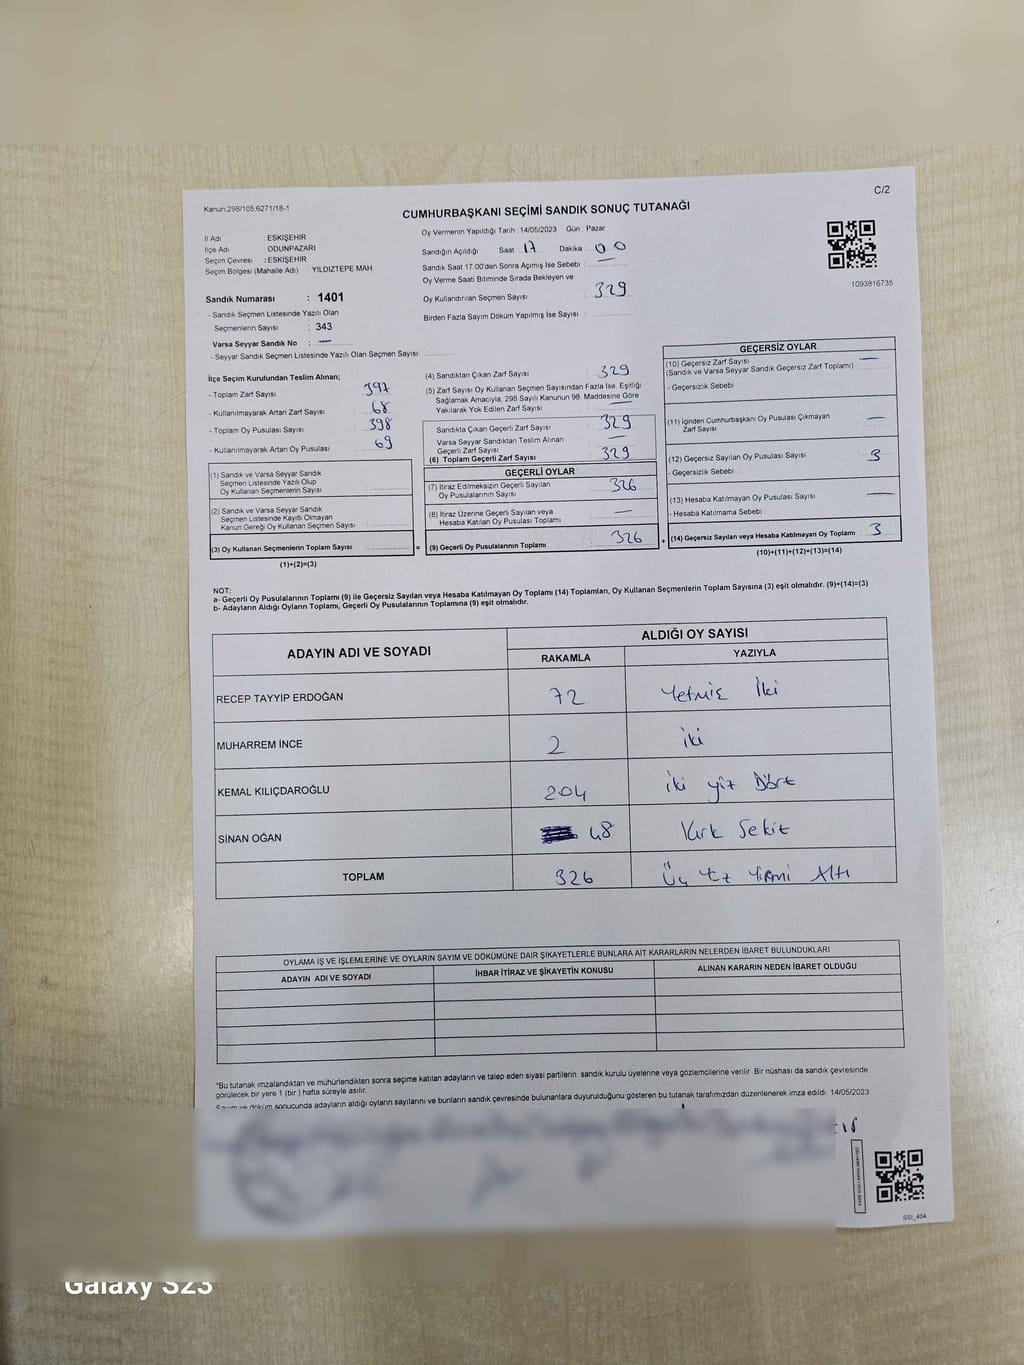 C/2
Kanun:298/105;6271/18-1
CUMHURBAŞKANI SEÇİMİ SANDIK SONUÇ TUTANAĞI
İl Adı : ESKİŞEHİR
İlçe Adı : ODUNPAZARI
Seçim Çevresi : ESKİŞEHİR
Seçim Bölgesi (Mahalle Adı) YILDIZTEPE MAH.
Sandık Numarası : 1401
- Sandık Seçmen Listesinde Yazılı Olan
Seçmenlerin Sayısı : 343
Varsa Seyyar Sandık No : —
- Seyyar Sandık Seçmen Listesinde Yazılı Olan Seçmen Sayısı
Oy Vermenin Yapıldığı Tarih : 14/05/2023 Gün : Pazar
Sandığın Açıldığı Saat 17 Dakika : 00
Sandık Saat 17:00'den Sonra Açımış İse Sebebi : —
Oy Verme Saati Bitiminde Sırada Bekleyen ve
Oy Kullandırılan Seçmen Sayısı : 329
Birden Fazla Sayım Döküm Yapılmış İse Sayısı :
1093816735
İlçe Seçim Kurulundan Teslim Alınan;
- Toplam Zarf Sayısı : 397
- Kullanılmayarak Artan Zarf Sayısı : 68
- Toplam Oy Pusulası Sayısı : 398
- Kullanılmayarak Artan Oy Pusulası : 69
(1) Sandık ve Varsa Seyyar Sandık
Seçmen Listesinde Yazılı Olup
Oy Kullanan Seçmenlerin Sayısı :
(2) Sandık ve Varsa Seyyar Sandık
Seçmen Listesinde Kayıtlı Olmayan
Kanun Gereği Oy Kullanan Seçmen Sayısı :
(3) Oy Kullanan Seçmenlerin Toplam Sayısı :
(1)+(2)=(3)
=
(4) Sandıktan Çıkan Zarf Sayısı : 329
(5) Zarf Sayısı Oy Kullanan Seçmen Sayısından Fazla İse, Eşitliği
Sağlamak Amacıyla, 298 Sayılı Kanunun 98. Maddesine Göre
Yakılarak Yok Edilen Zarf Sayısı : —
Sandıkta Çıkan Geçerli Zarf Sayısı : 329
Varsa Seyyar Sandıktan Teslim Alınan
Geçerli Zarf Sayısı : —
(6) Toplam Geçerli Zarf Sayısı : 329
GEÇERLİ OYLAR
(7) İtiraz Edilmeksizin Geçerli Sayılan
Oy Pusulalarının Sayısı : 326
(8) İtiraz Üzerine Geçerli Sayılan veya
Hesaba Katılan Oy Pusulası Toplamı : —
(9) Geçerli Oy Pusulalarının Toplamı : 326
+
GEÇERSİZ OYLAR
(10) Geçersiz Zarf Sayısı : —
(Sandık ve Varsa Seyyar Sandık Geçersiz Zarf Toplamı)
- Geçersizlik Sebebi :
(11) İçinden Cumhurbaşkanı Oy Pusulası Çıkmayan
Zarf Sayısı : —
(12) Geçersiz Sayılan Oy Pusulası Sayısı : 3
- Geçersizlik Sebebi :
(13) Hesaba Katılmayan Oy Pusulası Sayısı : —
- Hesaba Katılmama Sebebi :
(14) Geçersiz Sayılan veya Hesaba Katılmayan Oy Toplamı : 3
(10)+(11)+(12)+(13)=(14)
NOT:
a- Geçerli Oy Pusulalarının Toplamı (9) ile Geçersiz Sayılan veya Hesaba Katılmayan Oy Toplamı (14) Toplamları, Oy Kullanan Seçmenlerin Toplam Sayısına (3) eşit olmalıdır. (9)+(14)=(3)
b- Adayların Aldığı Oyların Toplamı, Geçerli Oy Pusulalarının Toplamına (9) eşit olmalıdır.
ADAYIN ADI VE SOYADI ALDIĞI OY SAYISI
RAKAMLA YAZIYLA
RECEP TAYYİP ERDOĞAN 72 Yetmiş İki
MUHARREM İNCE 2 iki
KEMAL KILIÇDAROĞLU 204 iki yüz Dört
SİNAN OĞAN 48 Kırk Sekiz
TOPLAM 326 Üç Yüz Yirmi Altı
OYLAMA İŞ VE İŞLEMLERİNE VE OYLARIN SAYIM VE DÖKÜMÜNE DAİR ŞİKAYETLERLE BUNLARA AİT KARARLARIN NELERDEN İBARET BULUNDUKLARI
ADAYIN ADI VE SOYADI İHBAR İTİRAZ VE ŞİKAYETİN KONUSU ALINAN KARARIN NEDEN İBARET OLDUĞU
*Bu tutanak imzalandıktan ve mühürlendikten sonra seçime katılan adayların ve talep eden siyasi partilerin sandık kurulu üyelerine veya gözlemcilerine verilir. Bir nüshası da sandık çevresinde
görülecek bir yere 1 (bir) hafta süreyle asılır.
Sayım ve döküm sonucunda adayların aldığı oyların sayılarını ve bunların sandık çevresinde bulunanlara duyurulduğunu gösteren bu tutanak tarafımızdan düzenlenerek imza edildi. 14/05/2023
SSI_404
Galaxy S23